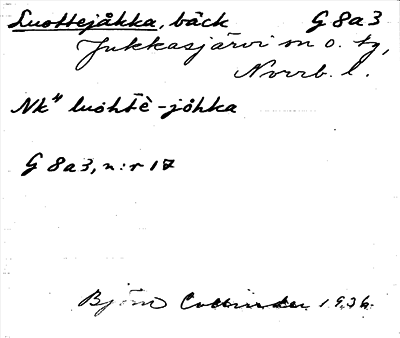 Luottejåkka, bäck G 8a3
Jukkasjärvi sn o. tg,
Norrb. l.
Nk" luohtè-johka
G 8a3, n:r 17
Björn Collinder 1936.